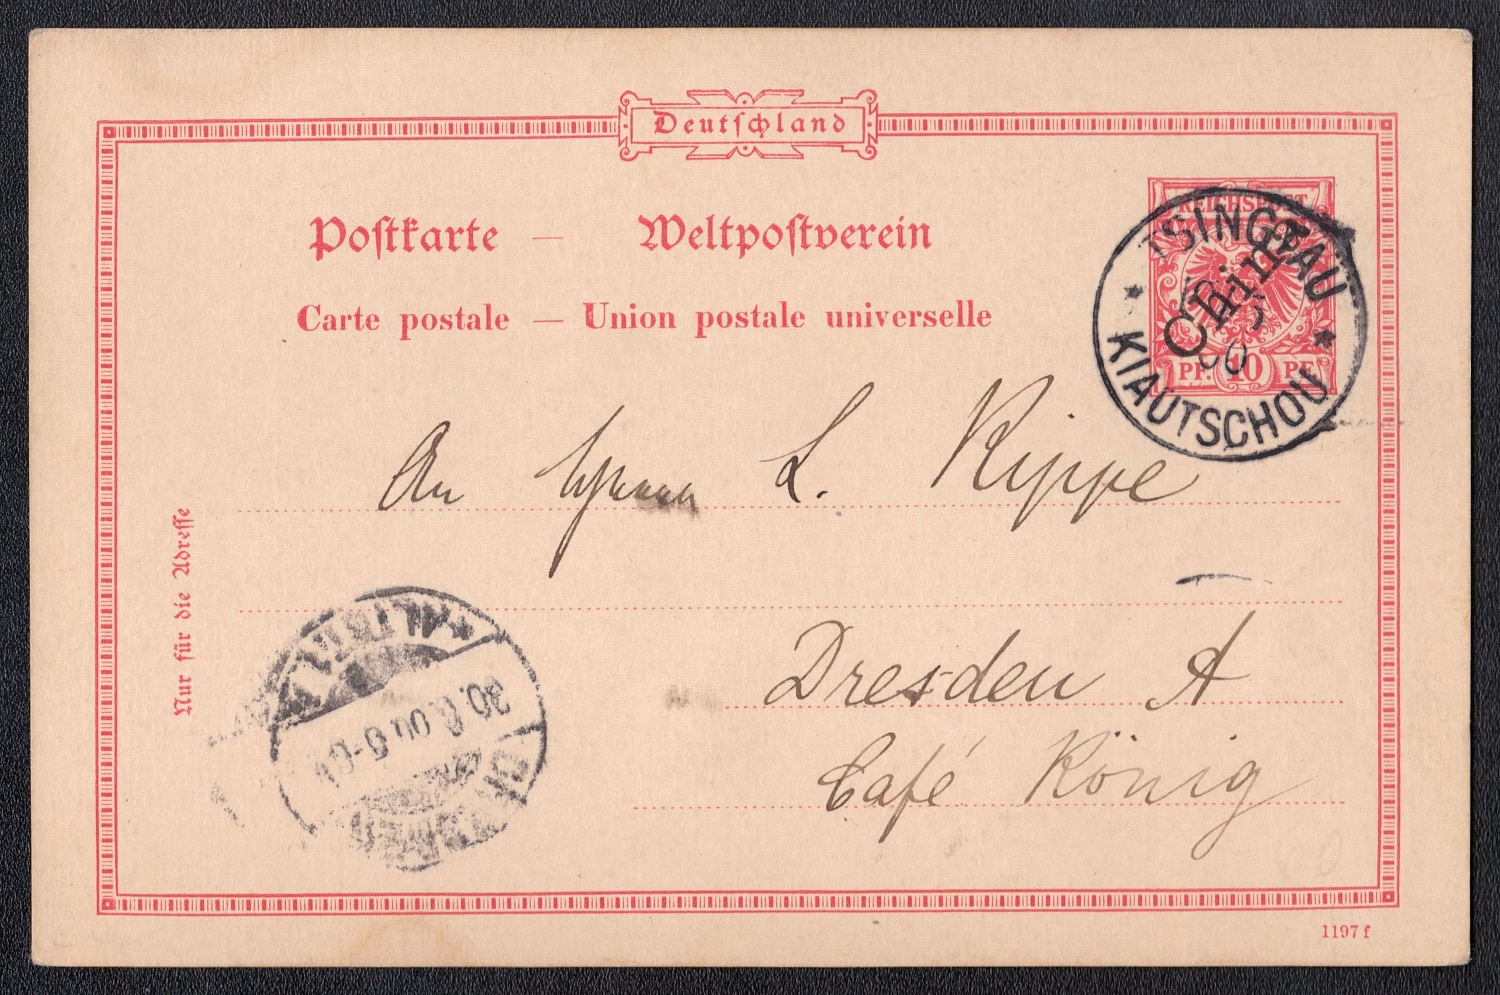 Deutschland
Postkarte — Weltpostverein
Carte postale — Union postale universelle
REICHSPOST
China
PF. 10 PF.
TSINGTAU
00
KIAUTSCHOU
An Herrn L. Rippe
Dresden A
Café König
Nur für die Adresse
ALTST.
30.6.00
1197 f